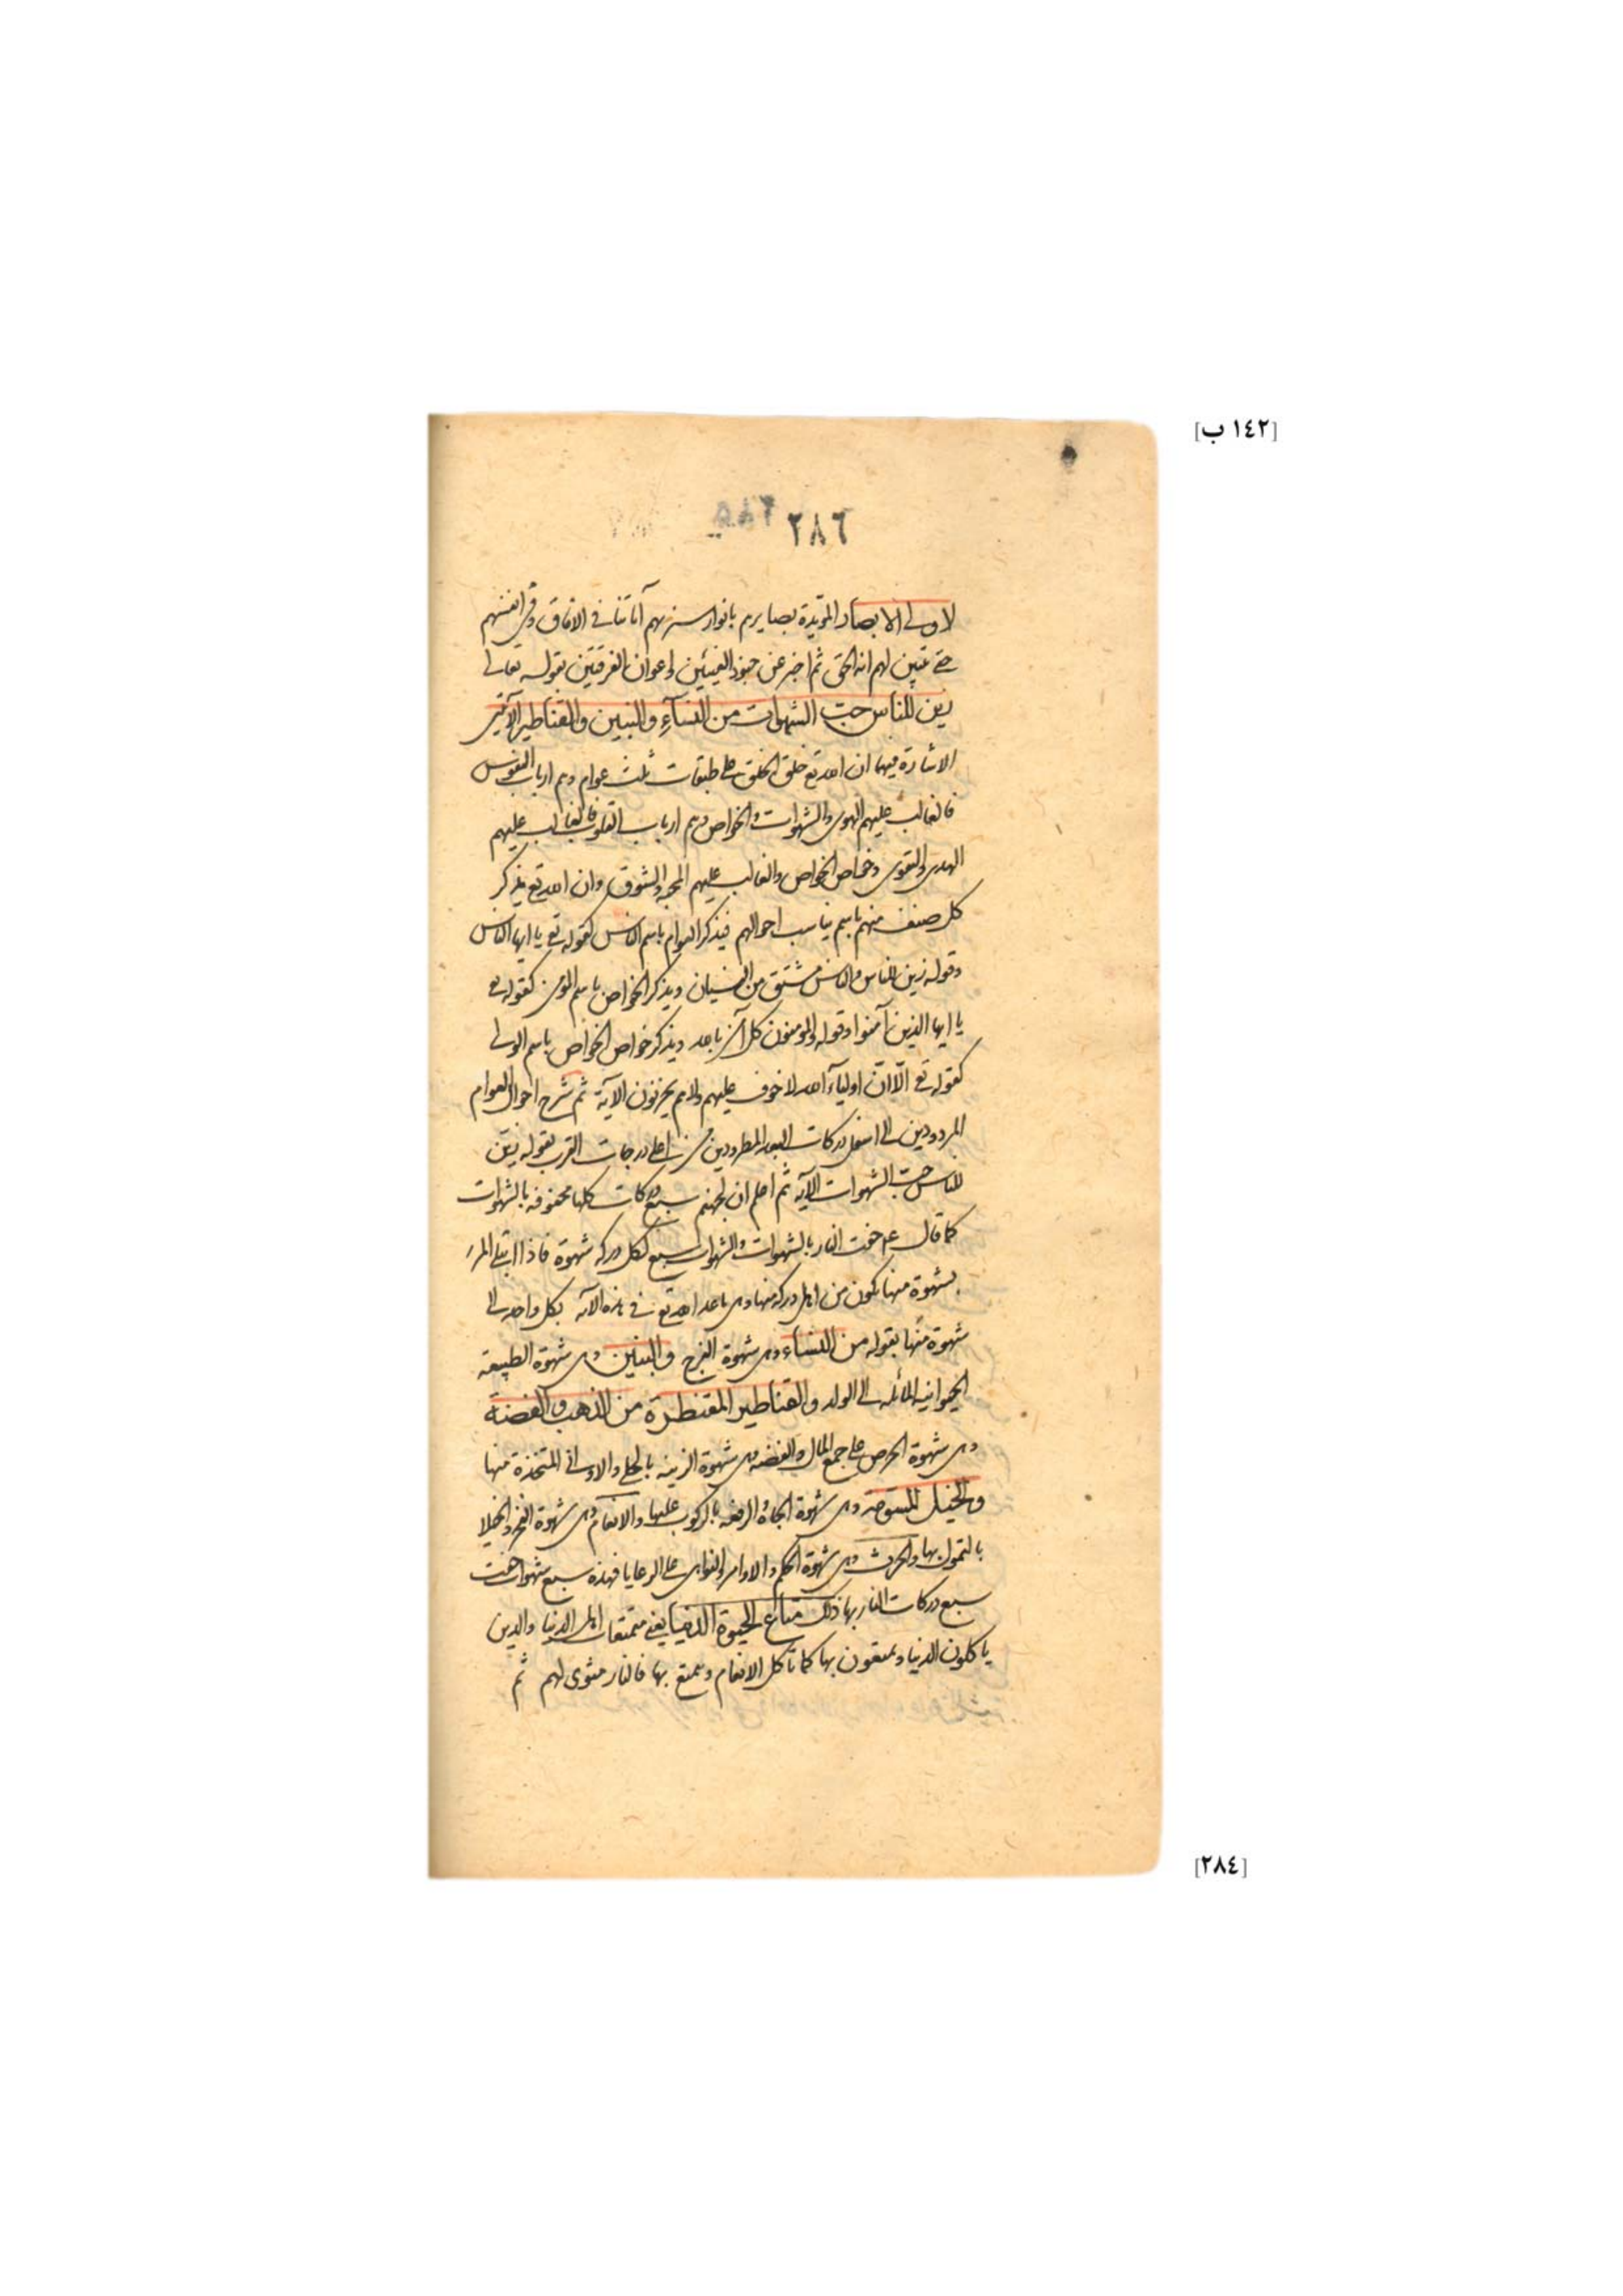 [١٤٢ ب]
٢٨٦
لاولى الابصار المؤيدة بصايرهم بانوار سنريهم آياتنا فى الافاق وفى انفسهم
حتى يتبين لهم انه الحق ثم اخبر عن جنود الفئتين واعوان الفرقتين بقوله تعالى
زين للناس حب الشهوات من النسآء والبنين والقناطير الآيتين
الاشارة فيهما ان الله تع خلق الخلق على طبقات ثلث عوام وهم ارباب النفوس
فالغالب عليهم الهوى والشهوات والخواص وهم ارباب القلوب فالغالب عليهم
الهدى والتقوى وخواص الخواص والغالب عليهم المحبة والشوق وان الله تع يذكر
كل صنف منهم باسم يناسب احوالهم فيذكر العوام باسم الناس كقوله تع يا ايها الناس
وقوله زين للناس والناس مشتق من النسيان ويذكر الخواص باسم المؤمن كقوله تع
يا ايها الذين آمنوا وقوله والمومنون كل آمن بالله ويذكر خواص الخواص باسم الولى
كقوله تع الا ان اوليآء الله لا خوف عليهم ولا هم يحزنون الآية ثم شرح احوال العوام
المردودين الى اسفل دركات البعد المطرودين من اعلى درجات القرب بقوله زين
للناس حب الشهوات الآيه ثم اعلم ان لجهنم سبع دركات كلها محفوفه بالشهوات
كما قال عم حفت النار بالشهوات والشهوات سبع لكل دركه شهوة فاذا ابتلى المرء
بشهوة منها يكون من اهل دركه منها الله تع فى هذه الآيه بكل واحد الى
شهوة منها بقوله من النساء وهى شهوة الفرج والبنين وهى شهوة الطبيعة
الحيوانيه المائله الى الولد والقناطير المقنطرة من الذهب والفضة
وهى شهوة الحرص على جمع المال والفضه وهى شهوة الزينه بالحلى والاوانى المتخذة منها
والخيل المسومه وهى شهوة الجاه والرفعه بالركوب عليها والانعام وهى شهوة الفخر والخيلا
بالتمول بها والحرث وهى شهوة الحكم والاوامر والنواهى على الرعايا فهذه سبع شهوات حفت
سبع دركات النار بها ذلك متاع الحيوة الدنيا يعنى متمتعات اهل الدنيا والذين
ياكلون الدنيا ويمتعون بها كما تاكل الانعام وتمتع بها فالنار مثوى لهم ثم
[٢٨٤]